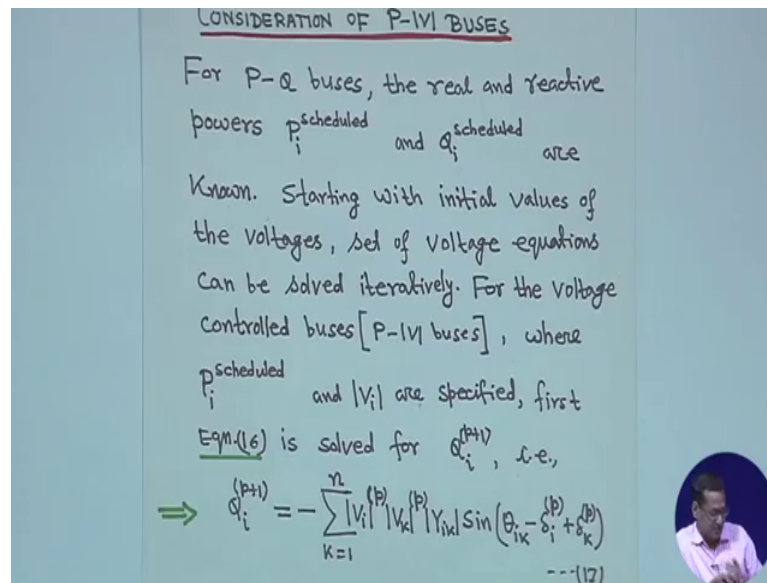 CONSIDERATION OF P-|V| BUSES
For P-Q buses, the real and reactive
powers P_i^scheduled and Q_i^scheduled are
Known. Starting with initial values of
the voltages, set of voltage equations
can be solved iteratively. For the voltage
controlled buses [P-|V| buses], where
P_i^scheduled and |V_i| are specified, first
Eqn.(16) is solved for Q_i^(p+1), i.e.,
⇒ Q_i^(p+1) = - Σ_{k=1}^{n} |V_i|^(p) |V_k|^(p) |Y_ik| Sin(θ_ik - δ_i^(p) + δ_k^(p))
---(17)